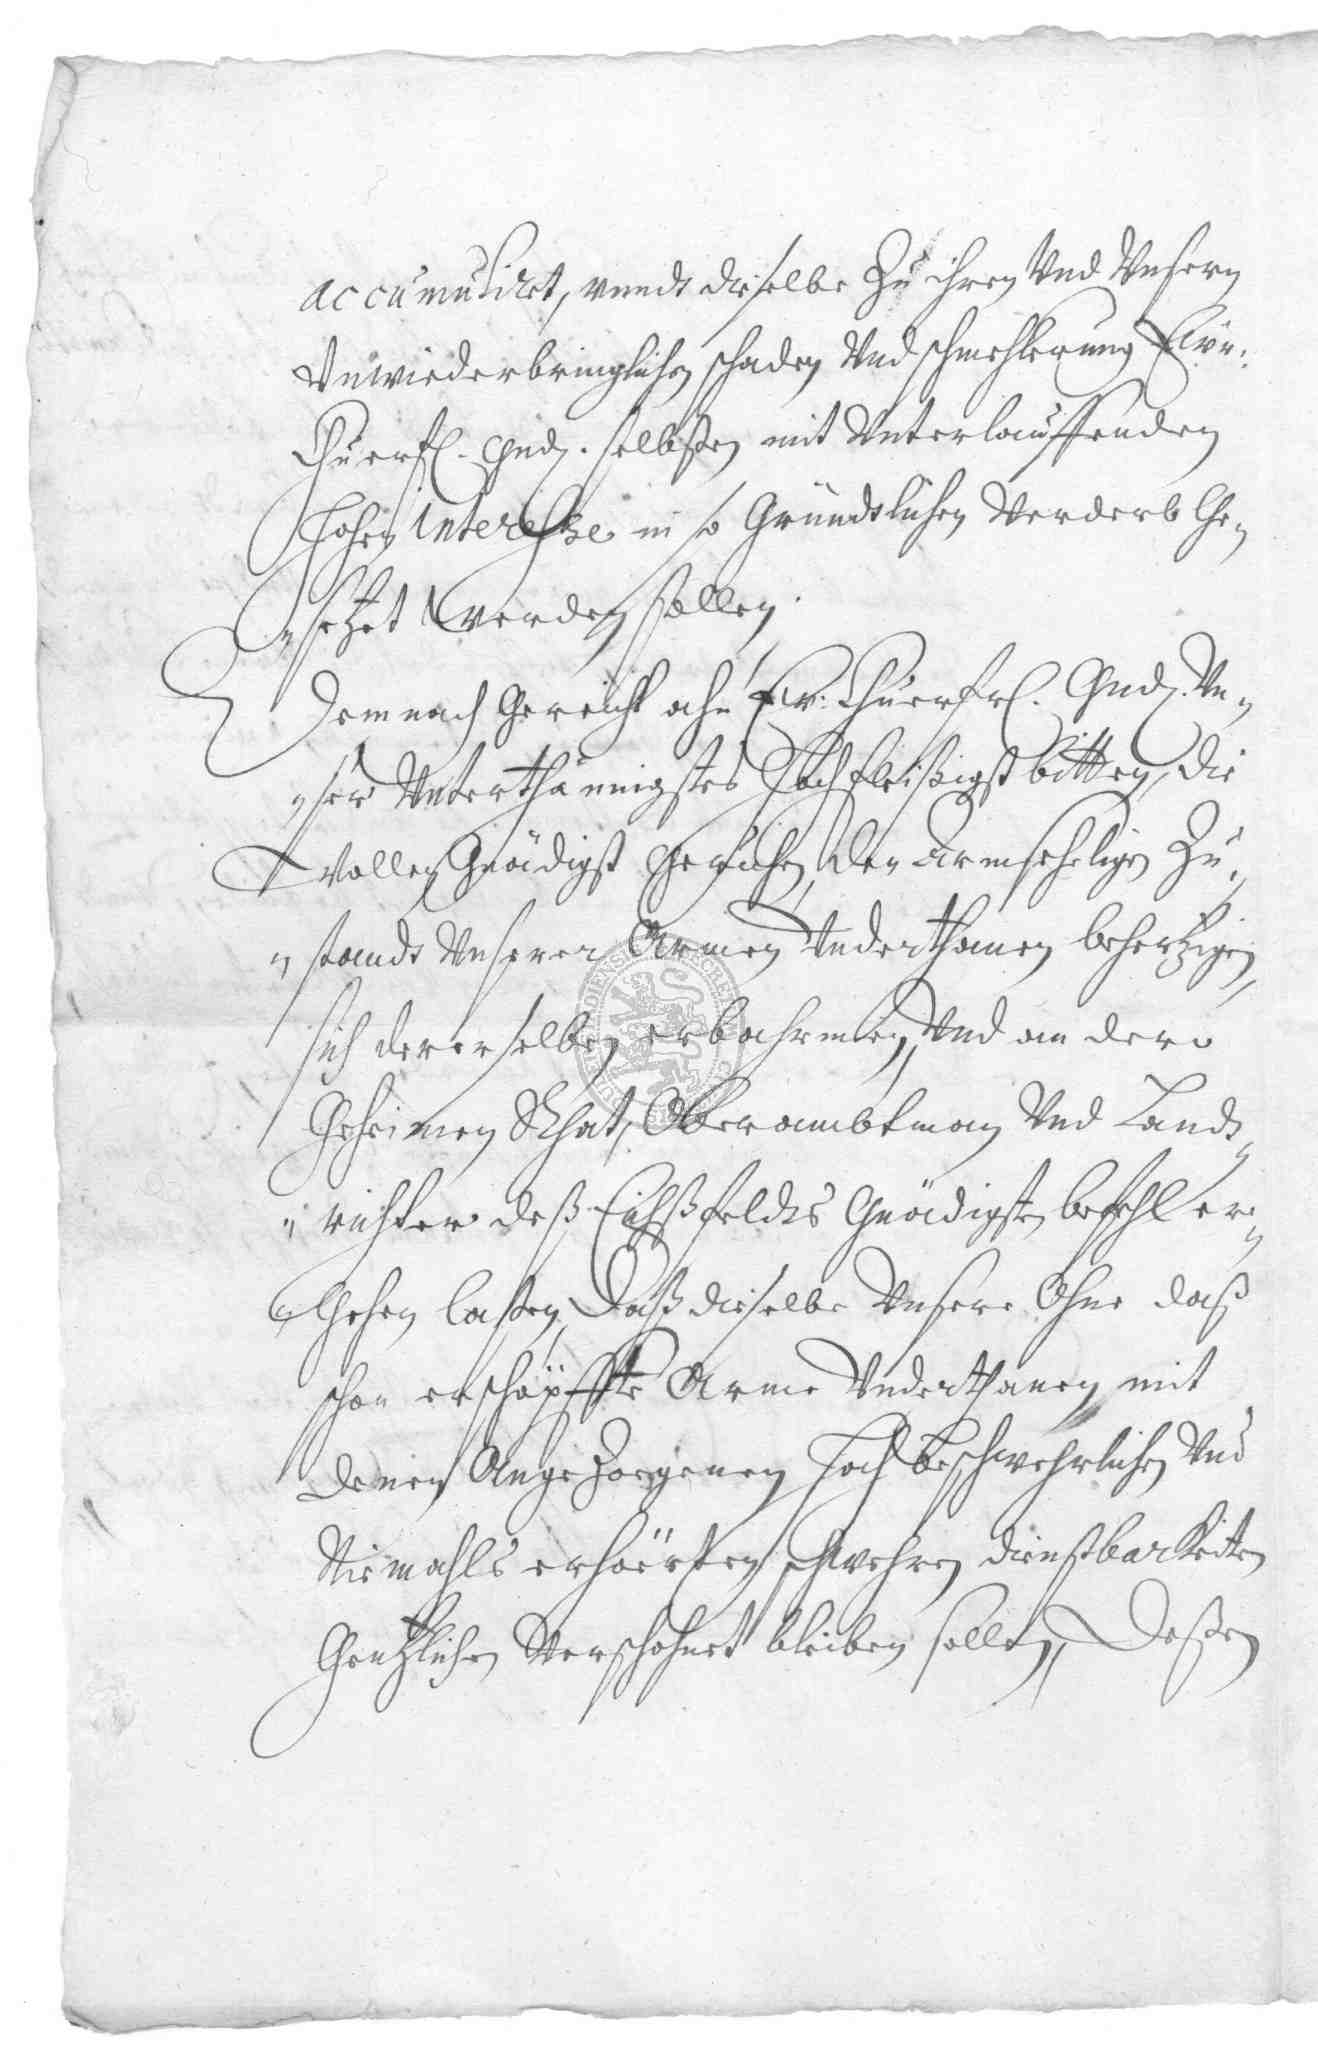 accumulirt, unndt dieselbe Zu ihren Und Unsern
Unwiederbringlichen schaden Und schmehlerung Ewr:
Chuerfl. Gnd. selbsten mit Unterlauffenden
Hohen interesse in so Gründtlichen Verderb Ge„
„setzet werden sollen.
Demnach Gereicht ahn Ew: Chuerfrl. Gnd. Un„
„ser Unterthännigstes Hochfleißigst bitten, die
Wollen Gnädigst Geruhen, den Armsehligen Zu„
„standt Unserer Armen Underthanen behertzigen,
sich dererselben erbahrmen, Und an dero
Geheimen Rhat, Oberambtman Und Landt„
„richter deß Eichßfeldts Gnädigsten befehl er„
„Gehen laßen, Daß dieselbe Unsere Ohne daß
schon erschöpffte Arme Underthanen mit
denen Angezogenen Hoch beschwehrlichen Und
Niemahls erhörten schwehren dienstbarkeiten
Gentzlichen Verschohnet bleiben sollen, Deßen